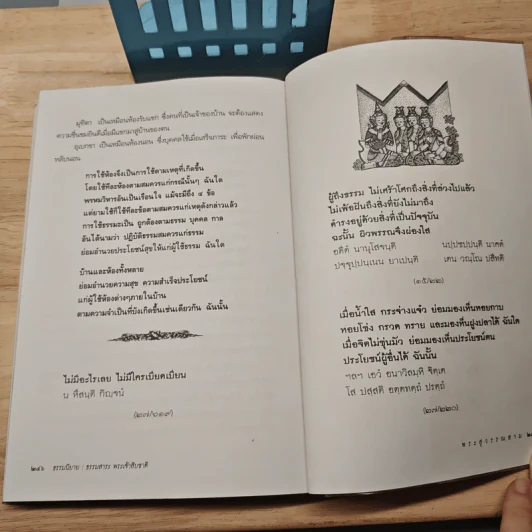 มุทิตา เป็นเหมือนห้องรับแขก ซึ่งคนที่เป็นเจ้าของบ้าน จะต้องแสดง
ความชื่นชมยินดีเมื่อมีแขกมาสู่บ้านของตน
อุเบกขา เป็นเหมือนห้องนอน ซึ่งบุคคลใช้เมื่อเสร็จภาระ เพื่อพักผ่อน
หลับนอน
การใช้ห้องจึงเป็นการใช้ตามเหตุที่เกิดขึ้น
โดยใช้ทีละห้องตามสมควรแก่กรณีนั้นๆ ฉันใด
พรหมวิหารอันเป็นเรือนใจ แม้จะมีถึง ๔ ข้อ
แต่ยามใช้ก็ใช้ทีละข้อตามสมควรแก่เหตุดังกล่าวแล้ว
การใช้ธรรมะเป็น ถูกต้องตามธรรม บุคคล กาล
อันได้นามว่า ปฏิบัติธรรมสมควรแก่ธรรม
ย่อมอำนวยประโยชน์สุขให้แก่ผู้ใช้ธรรม ฉันใด
บ้านและห้องทั้งหลาย
ย่อมอำนวยความสุข ความสำเร็จประโยชน์
แก่ผู้ใช้ห้องต่างๆภายในบ้าน
ตามความจำเป็นที่บังเกิดขึ้นเช่นเดียวกัน ฉันนั้น
ไม่มีอะไรเลย ไม่มีใครเบียดเบียน
น หึสนฺติ กิญฺจนํ
(๒๗/๒๑๙)
๒๔๖ ธรรมนิยาย : ธรรมสาระ พระเจ้าสิบชาติ
ผู้ถึงธรรม ไม่เศร้าโศกถึงสิ่งที่ล่วงไปแล้ว
ไม่เพ้อฝันถึงสิ่งที่ยังไม่มาถึง
ดำรงอยู่ด้วยสิ่งที่เป็นปัจจุบัน
ฉะนั้น ผิวพรรณจึงผ่องใส
อตีตํ นานุโสจนฺติ นปฺปชปฺปนฺติ นาคตํ
ปจฺจุปฺปนฺเนน ยาเปนฺติ เตน วณฺโณ ปสีทติ
(๑๕/๒๒)
เมื่อน้ำใส กระจ่างแจ๋ว ย่อมมองเห็นหอยกาบ
หอยโข่ง กรวด ทราย และมองเห็นฝูงปลาได้ ฉันใด
เมื่อจิตไม่ขุ่นมัว ย่อมมองเห็นประโยชน์ตน
ประโยชน์ผู้อื่นได้ ฉันนั้น
ฯลฯ เอวํ อนาวิลมฺหิ จิตฺเต
โส ปสฺสติ อตฺตทตฺถํ ปรตฺถํ
(๒๗/๒๒๐)
พระสุวรรณสาม